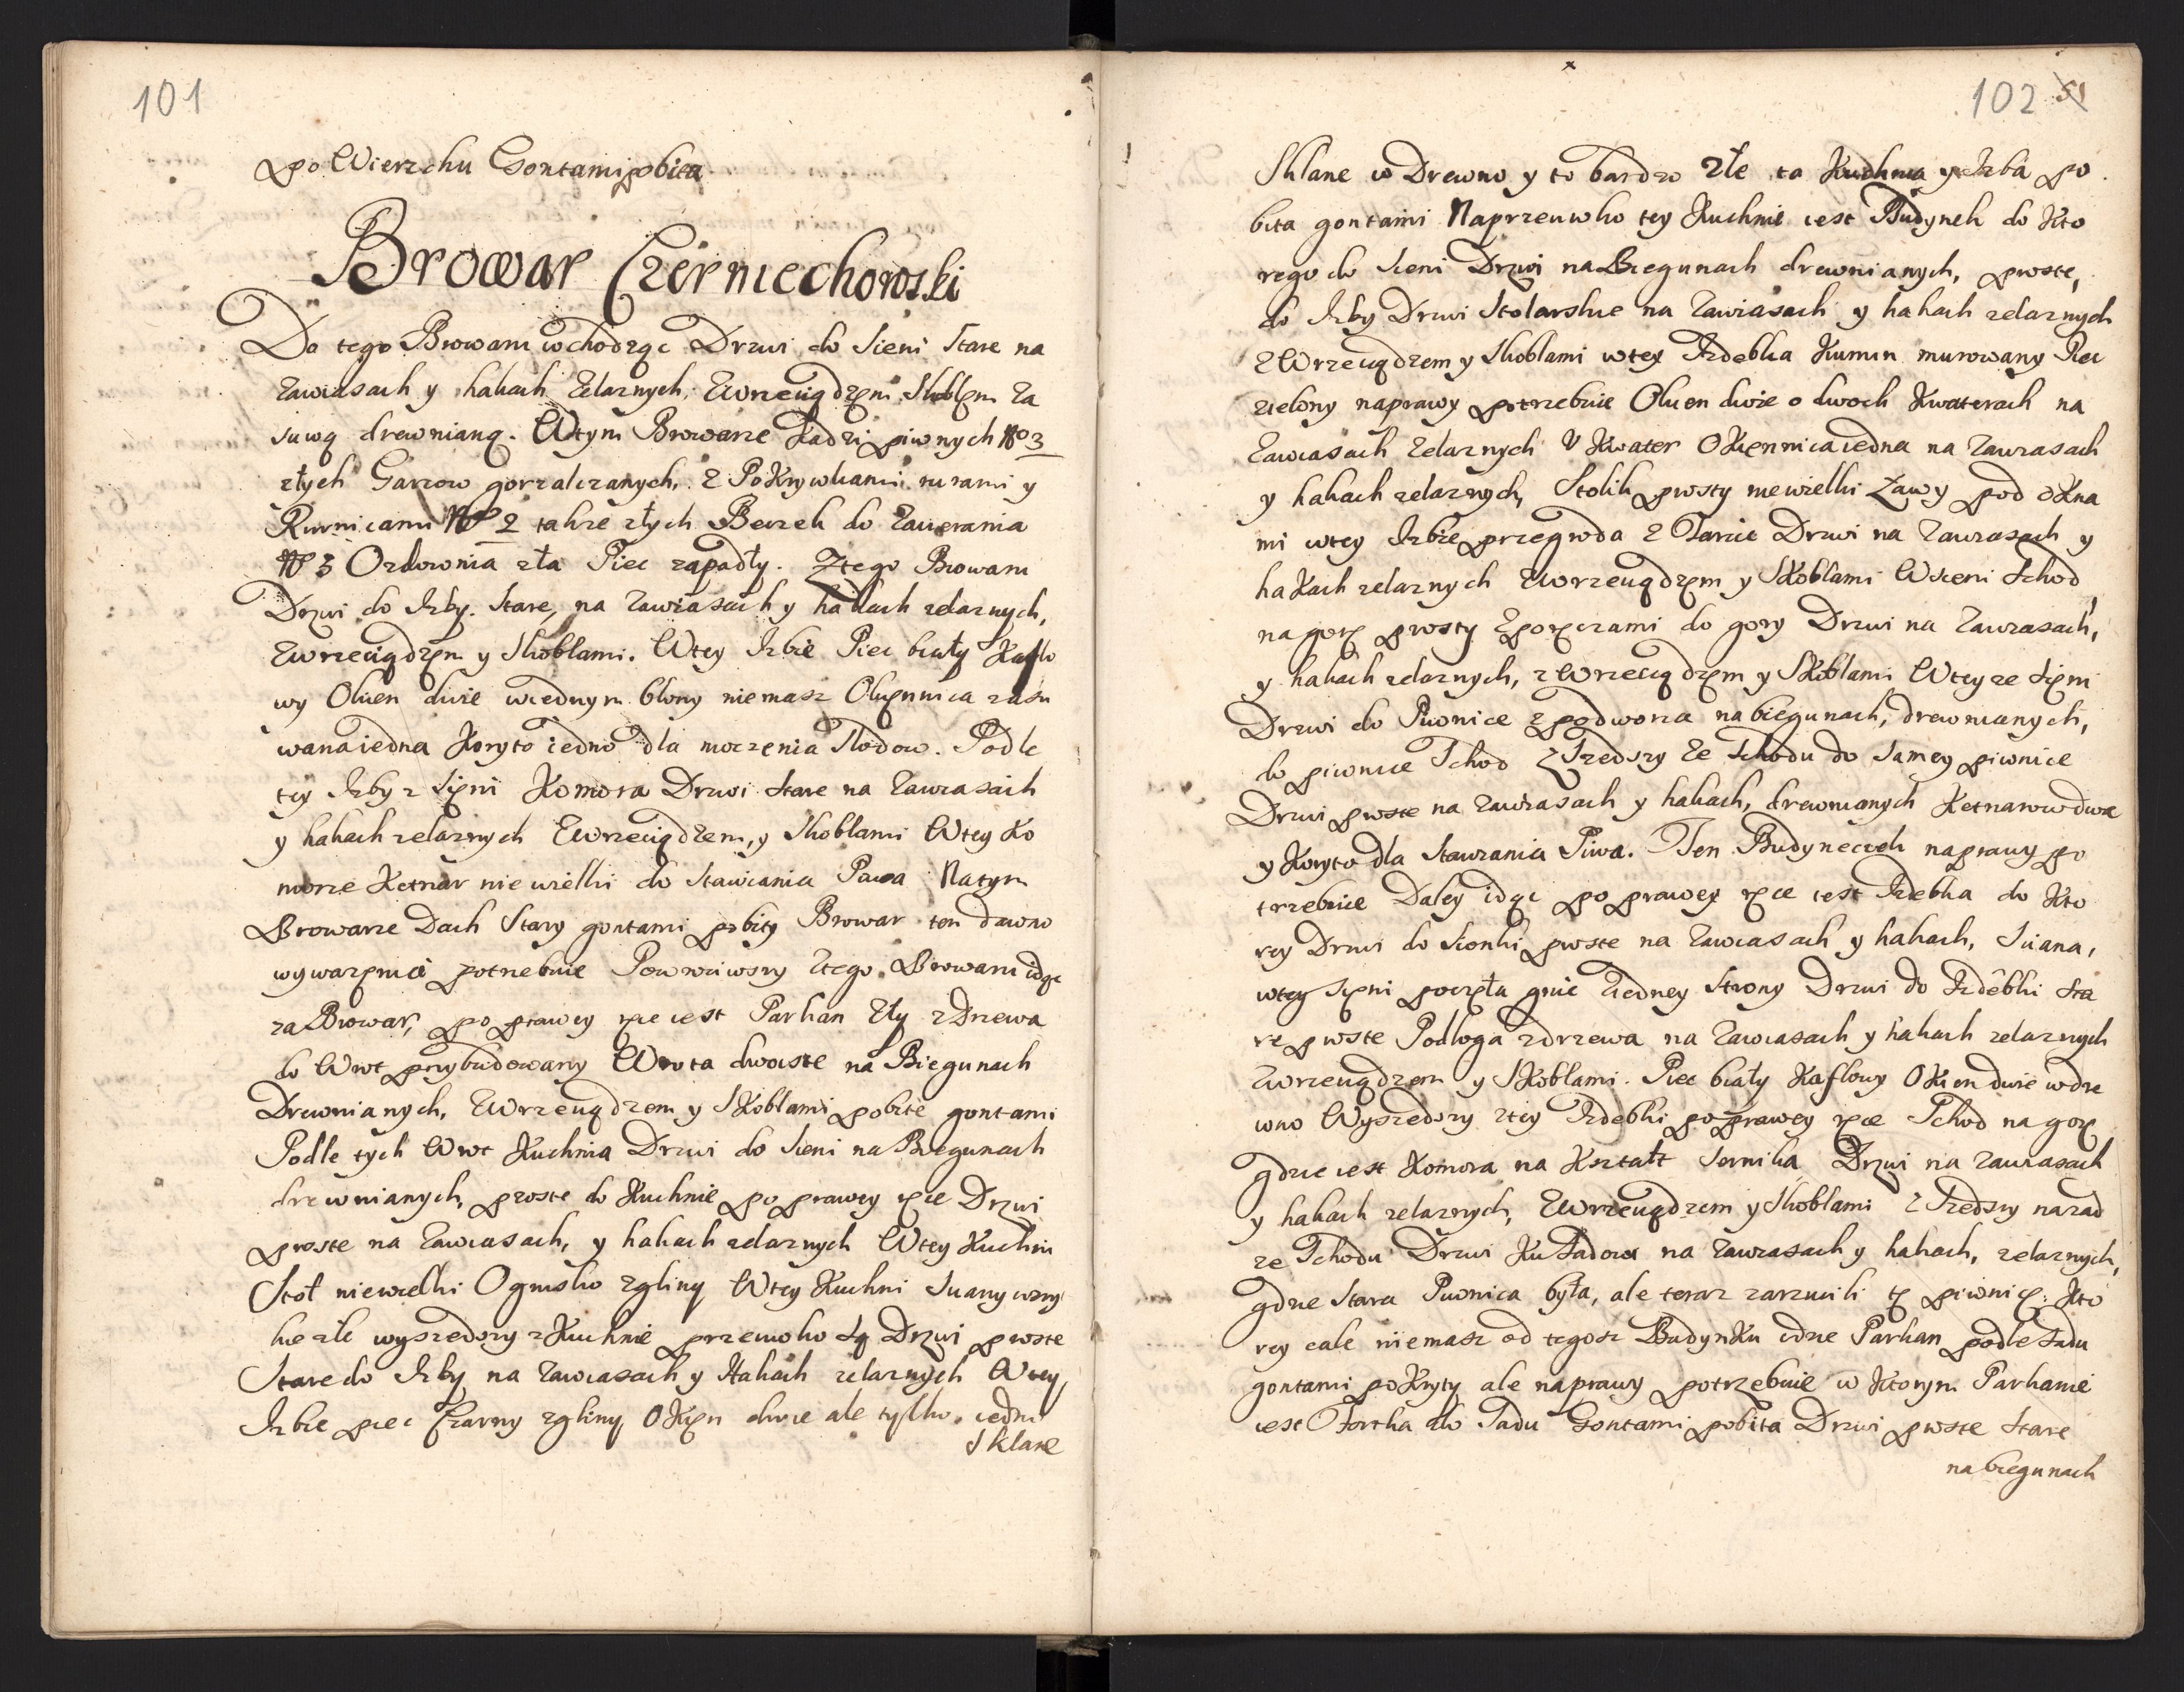 101
po Wierzchu Gontami pobita
Browar Czerniechowski
Do tego Browaru wchodząc Drzwi do Sieni Stare na
zawiasach y hakach żelaznych, z wrzeciądzem Skoblem za
suwą drewnianą. W tym Browarze Kadzi piwnych No 3
złych Garcow gorzalczanych, z PoKrywkami rurami y
Rurnicami No 2 także złych Beczek do zacierania
No 3 Ozdownia zła Piec zapadły. Z tego Browaru
Drzwi do Izby. Stare, na zawiasach y hakach żelaznych,
z wrzeciądzem y Skoblami. W tey Izbie Piec biały Kaflo
wy Okien dwie w iednym błony niemasz Okiennica zasu
wana iedna Koryto iedno dla moczenia Słodow. Podle
tey Izby z Sieni Komora Drzwi Stare na zawiasach
y hakach żelaznych z wrzeciądzem, y Skoblami W tey Ko
morze Ketnar nie wielki do Stawiania Piwa Na tym
Browarze Dach Stary gontami pobity Browar ten dawno
wywarzenia potrzebuie Powrociwszy z tego Browaru idąc
za Browar, po prawey ręce iest Parkan zły z Drzewa
do Wrot przybudowany Wrota dwoiste na Biegunach
Drewnianych, z wrzeciądzem y SKoblami pobite gontami
Podle tych Wrot Kuchnia Drzwi do Sieni na Biegunach
drewnianych, proste do Kuchnie po prawey ręce Drzwi
proste na zawiasach, y hakach żelaznych W tey Kuchni
Stoł niewielki Ognisko z gliny W tey Kuchni Sciany wszy
kie złe wyszedszy z Kuchnie przeciwko są Drzwi proste
Stare do Izby na zawiasach y Hakach żelaznych W tey
Izbie piec Czarny z gliny OKien dwie ale tylko iedno
Sklane
102 51
Sklane w Drewno y to bardzo złe ta Kuchnia y Izba po
bita gontami Naprzeciwko tey Kuchnie iest Budynek do Kto
rego do Sieni Drzwi na Biegunach drewnianych, proste,
do Izby Drzwi Stolarskie na zawiasach y hakach żelaznych
z Wrzeciądzem y Skoblami w tey Izdebka Kumin murowany Piec
zielony naprawy potrzebuie Okien dwie o dwoch Kwaterach na
zawiasach żelaznych V Kwater OKiennica iedna na zawiasach
y hakach żelaznych, Stolik prosty niewielki Ławy pod oKna
mi w tey Izbie przegroda z Tarcic Drzwi na zawiasach y
haKach żelaznych z wrzeciądzem y SKoblami W sieni Schod
na gorę prosty z poręczami do gory Drzwi na zawiasach,
y hakach żelaznych, z wrzeciądzem y SKoblami W teyze Sieni
Drzwi do Piwnice z podworza na biegunach, drewnianych,
do piwnice Schod Zszedszy ze Schodu do Samey piwnice
Drzwi proste na zawiasach y hakach, drewnianych Ketnarow dwa
y Koryto dla Stawiania Piwa. Ten Budyneczek naprawy po
trzebuie Daley idąc po prawey ręce iest Izdebka do Kto
rey Drzwi do Sionki proste na zawiasach y hakach, Sciana,
w tey Sieni poczęła gnic z iedney Strony Drzwi do Izdebki Sta
re proste Podłoga z drzewa na zawiasach y hakach żelaznych
z wrzeciądzem y SKoblami. Piec biały Kaflowy OKien dwie w drze
wno Wyszedszy z tey Izdebki po prawey ręce Schod na gorę
gdzie iest Komora na Kształt Sernika Drzwi na zawiasach
y hakach żelaznych, z wrzeciądzem y Skoblami Zszedszy nazad
ze Schodu Drzwi Ku Sadowi na zawiasach y hakach, żelaznych,
gdzie Stara Piwnica była, ale teraz zarzucili tę piwnicę. Kto
rey cale niemasz od tegosz BudynKu idzie Parkan podle Sadu
gontami poKryty ale naprawy potrzebuie w Ktorym Parkanie
iest Fortka do Sadu Gontami pobita Drzwi proste Stare
na biegunach